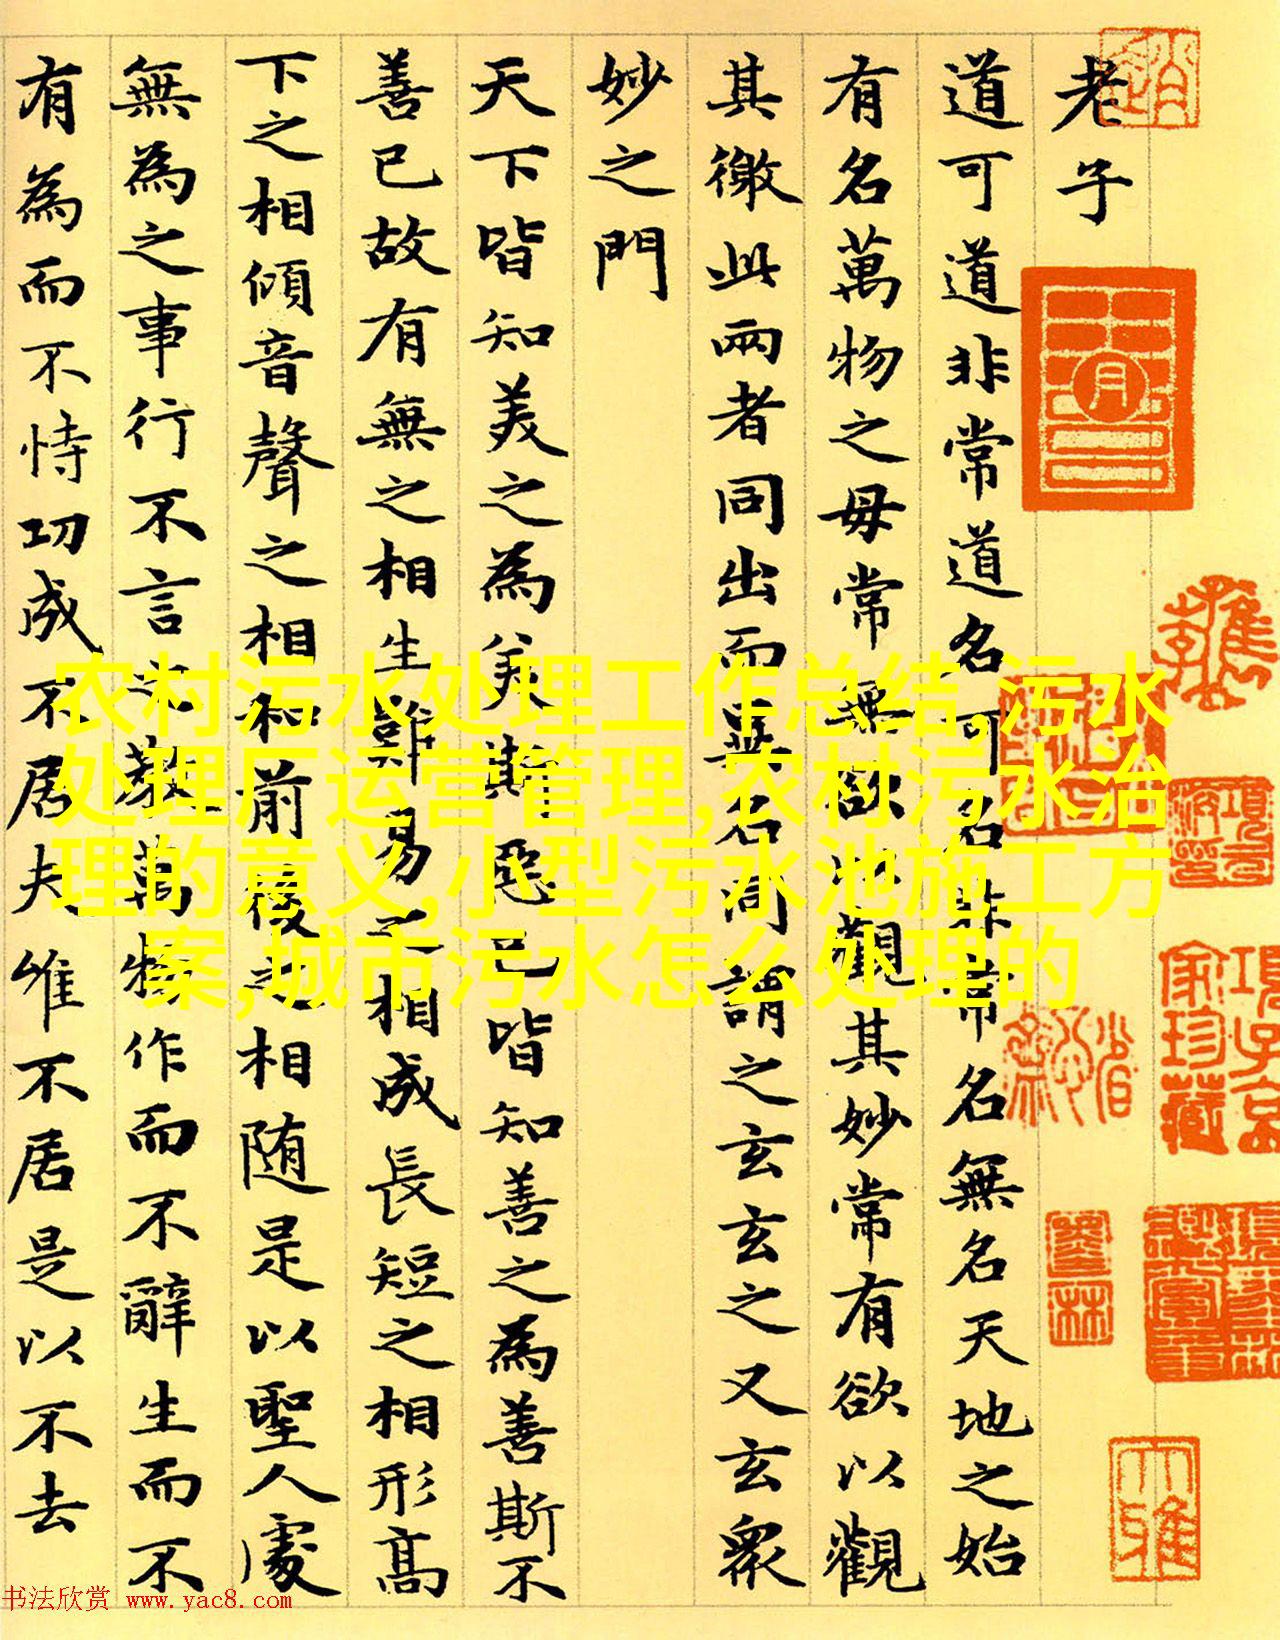 老子
道可道非常道名可名非常名無名天地之始
有名萬物之母常無欲以觀其妙常有欲以觀
其徼此兩者同出而異名同謂之玄玄之又玄衆
妙之門
天下皆知美之為美斯惡已皆知善之為善斯不
善已故有無之相生難易之相成長短之相形高
下之相傾音聲之相和前後之相随是以聖人處
無為之事行不言之教萬物作而不辭生而不
有為而不恃功成不居夫唯不居是以不去
农村污水处理工作总结,污水
处理厂运营管理,农村污水治
理的意义,小型污水池施工方
案,城市污水怎么处理的
项子京
家珍藏
书法欣赏 www.yac8.com